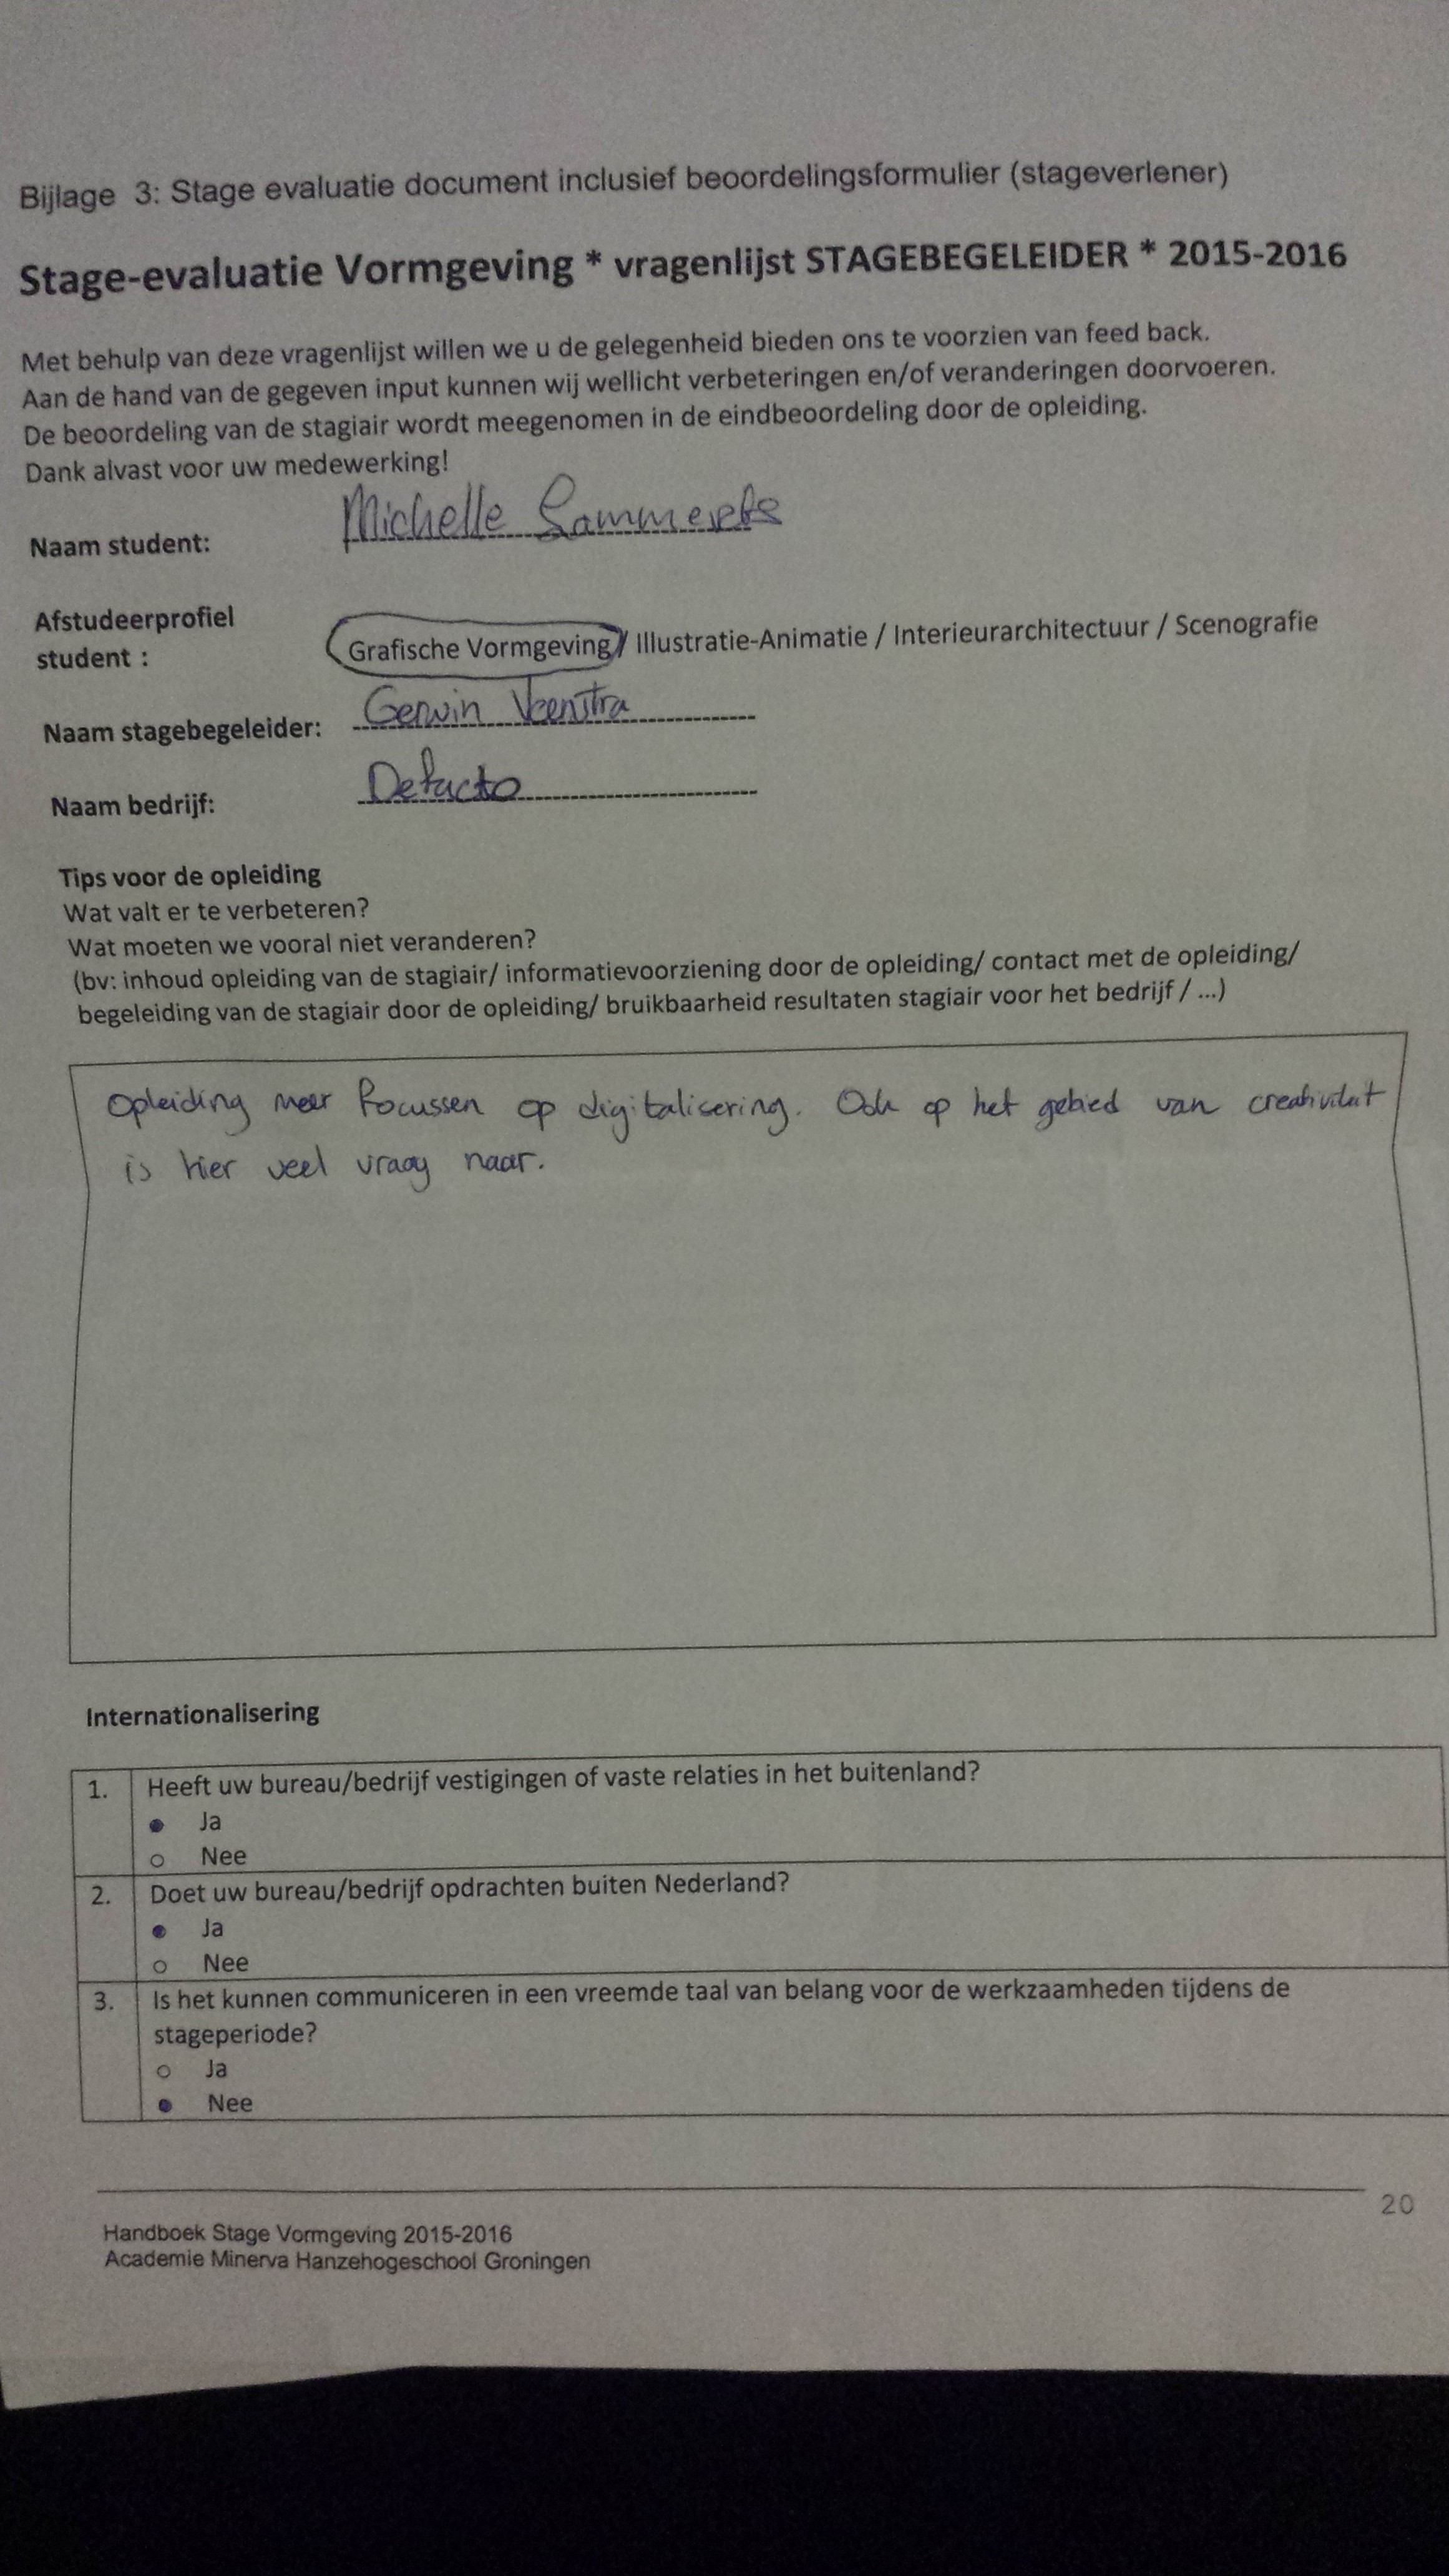 Bijlage 3: Stage evaluatie document inclusief beoordelingsformulier (stageverlener)
Stage-evaluatie Vormgeving * vragenlijst STAGEBEGELEIDER * 2015-2016
Met behulp van deze vragenlijst willen we u de gelegenheid bieden ons te voorzien van feed back.
Aan de hand van de gegeven input kunnen wij wellicht verbeteringen en/of veranderingen doorvoeren.
De beoordeling van de stagiair wordt meegenomen in de eindbeoordeling door de opleiding.
Dank alvast voor uw medewerking!
Naam student: Michelle
Afstudeerprofiel
student : Grafische Vormgeving / Illustratie-Animatie / Interieurarchitectuur / Scenografie
Naam stagebegeleider: Gerwin Veenstra
Naam bedrijf: Defacto
Tips voor de opleiding
Wat valt er te verbeteren?
Wat moeten we vooral niet veranderen?
(bv: inhoud opleiding van de stagiair/ informatievoorziening door de opleiding/ contact met de opleiding/
begeleiding van de stagiair door de opleiding/ bruikbaarheid resultaten stagiair voor het bedrijf / ...)
Opleiding meer focussen op digitalisering. Ook op het gebied van creativiteit
is hier veel vraag naar.
Internationalisering
1. Heeft uw bureau/bedrijf vestigingen of vaste relaties in het buitenland?
● Ja
○ Nee
2. Doet uw bureau/bedrijf opdrachten buiten Nederland?
● Ja
○ Nee
3. Is het kunnen communiceren in een vreemde taal van belang voor de werkzaamheden tijdens de
stageperiode?
○ Ja
● Nee
20
Handboek Stage Vormgeving 2015-2016
Academie Minerva Hanzehogeschool Groningen